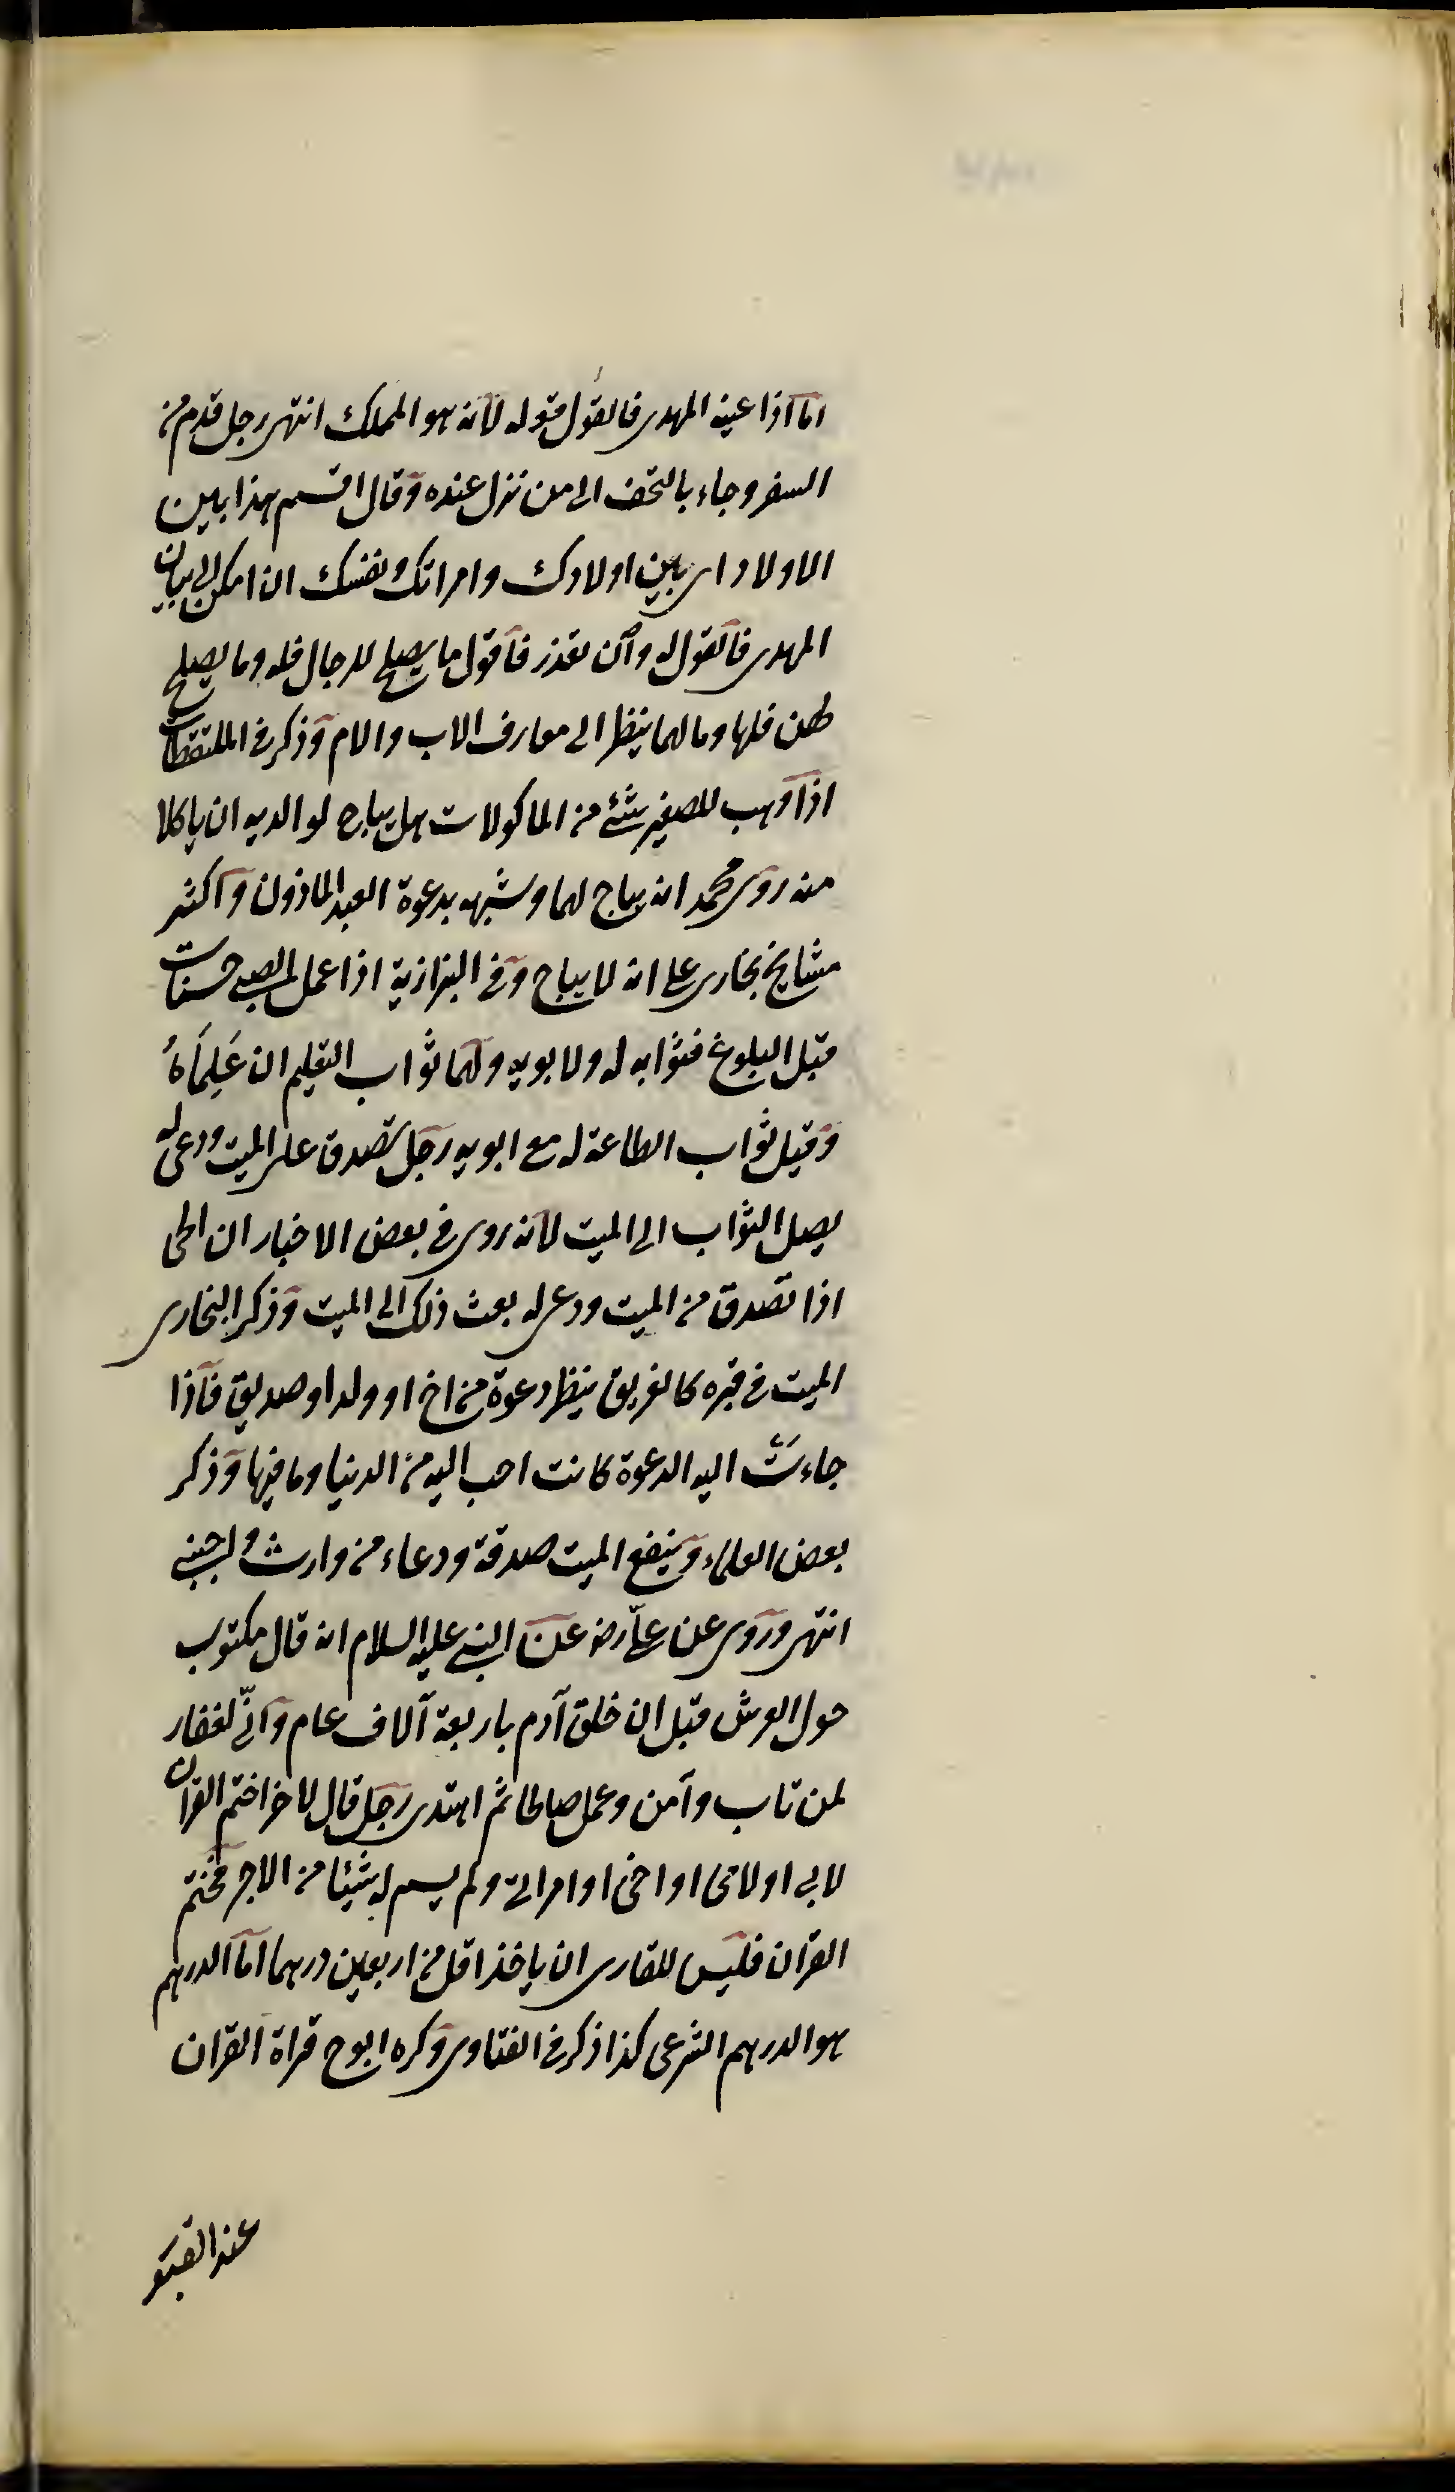 اما اذا عينه المهدى فالقول قوله لانه هو المملك انتهى رجل قدم من
السفر وجاء بالتحف الى من نزل عنده وقال اقسم هذا بين
الاولاد اى بين اولادك وامراتك ونفسك ان امكن الى بيان
المهدى فالقول له وان تعذر فاقول ما يصلح للرجال فله وما يصلح
لهن فلها وما لهما ينظر الى معارف الاب والام وذكر فى الملتقطات
اذا وهب للصغير شئ من الماكولات هل يباح لوالديه ان ياكلا
منه روى محمد انه يباح لهما وشبهه بدعوة العبد الماذون واكثر
مشايخ بخارى على انه لا يباح وفى البزازية اذا عمل الصبى حسنات
قبل البلوغ فثوابه له ولابويه ولهما ثواب التعليم ان عَلِمَاهُ
وقيل ثواب الطاعة له مع ابويه رجل تصدق على الميت ودعى له
يصل الثواب الى الميت لانه روى فى بعض الاخبار ان الحى
اذا تصدق من الميت ودعى له بعث ذلك الى الميت وذكر البخارى
الميت فى قبره كالغريق ينظر دعوة من اخ او ولد او صديق فاذا
جاءت اليه الدعوة كانت احب اليه من الدنيا وما فيها وذكر
بعض العلماء وينفع الميت صدقة ودعاء من وارث واجنبى
انتهى وروى عن علىّ رضه عن النبى عليه السلام انه قال مكتوب
حول العرش قبل ان خلق آدم باربعة آلاف عام وانّى لغفار
لمن تاب وآمن وعمل صالحا ثم اهتدى رجل قال لاخر اختم القران
لابى او لامى او اخى او امراتى ولم يسم له شيئا من الاجر فختم
القران فليس للقارى ان ياخذ اقل من اربعين درهما اما الدرهم
هو الدرهم الشرعى كذا ذكر فى الفتاوى وكره ابوح قراة القران
عند القبو